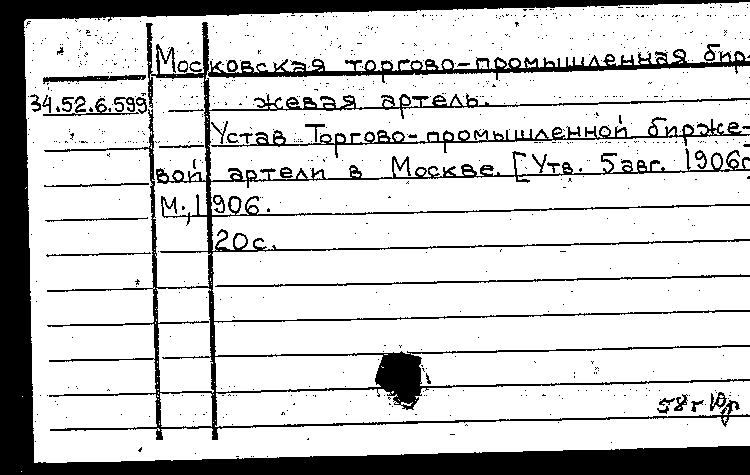 Московская торгово-промышленная бир-
34.52.6.599 жевая артель.
Устав Торгово-промышленной бирже-
вой артели в Москве. [Утв. 5 авг. 1906г
М., 1906.
20 с.
58г Юр